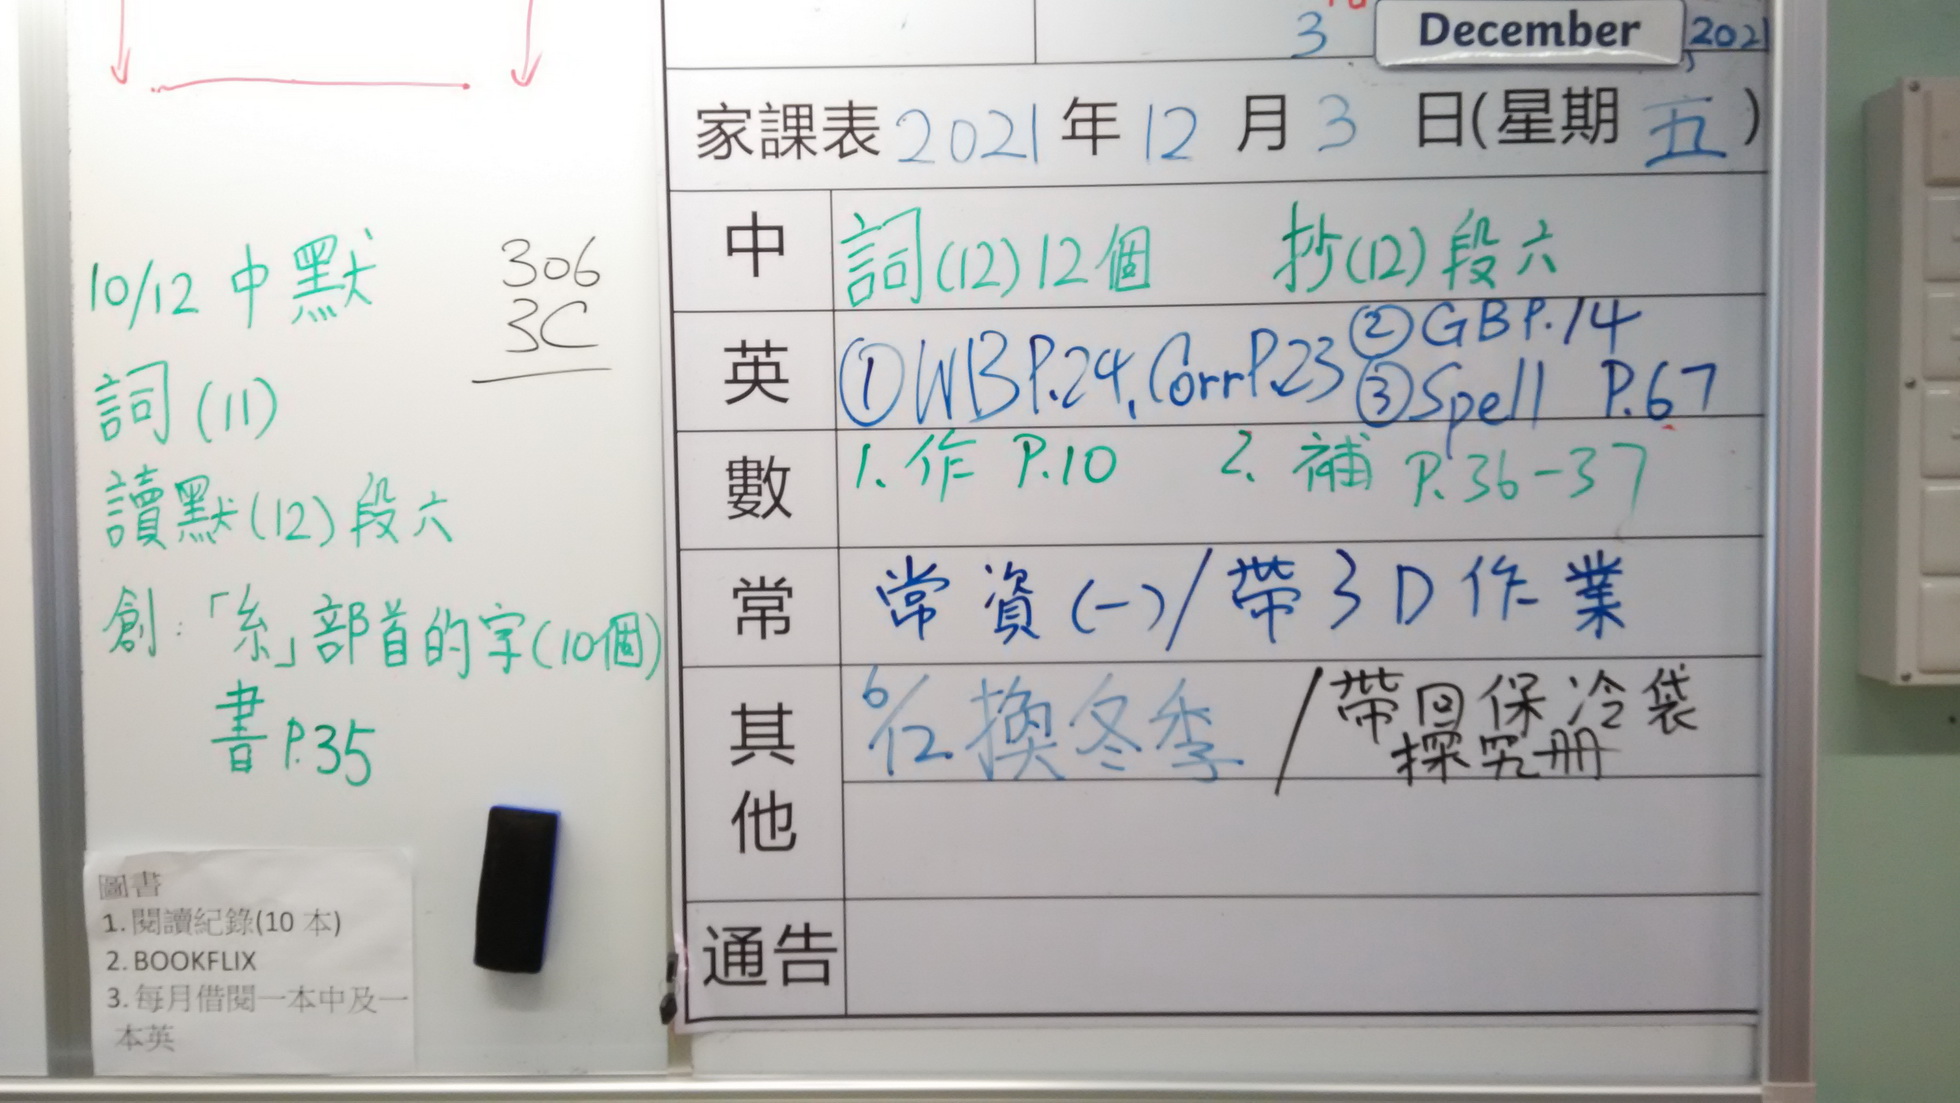 10/12 中默
詞 (11)
讀默(12) 段六
創:「糸」部首的字(10個)
書 P.35
306
3C
圖書
1. 閱讀紀錄(10 本)
2. BOOKFLIX
3. 每月借閱一本中及一
本英
3 December 2021
家課表 2021 年 12 月 3 日(星期 五)
中 詞(12)12個 抄(12)段六
英 ①WB P.24, Corr P.23 ②GB P.14
③Spell P.67
數 1. 作 P.10 2. 補 P.36-37
常 常資(一)/帶3D作業
其他 6/12 換冬季 /帶回保冷袋
探究册
通告